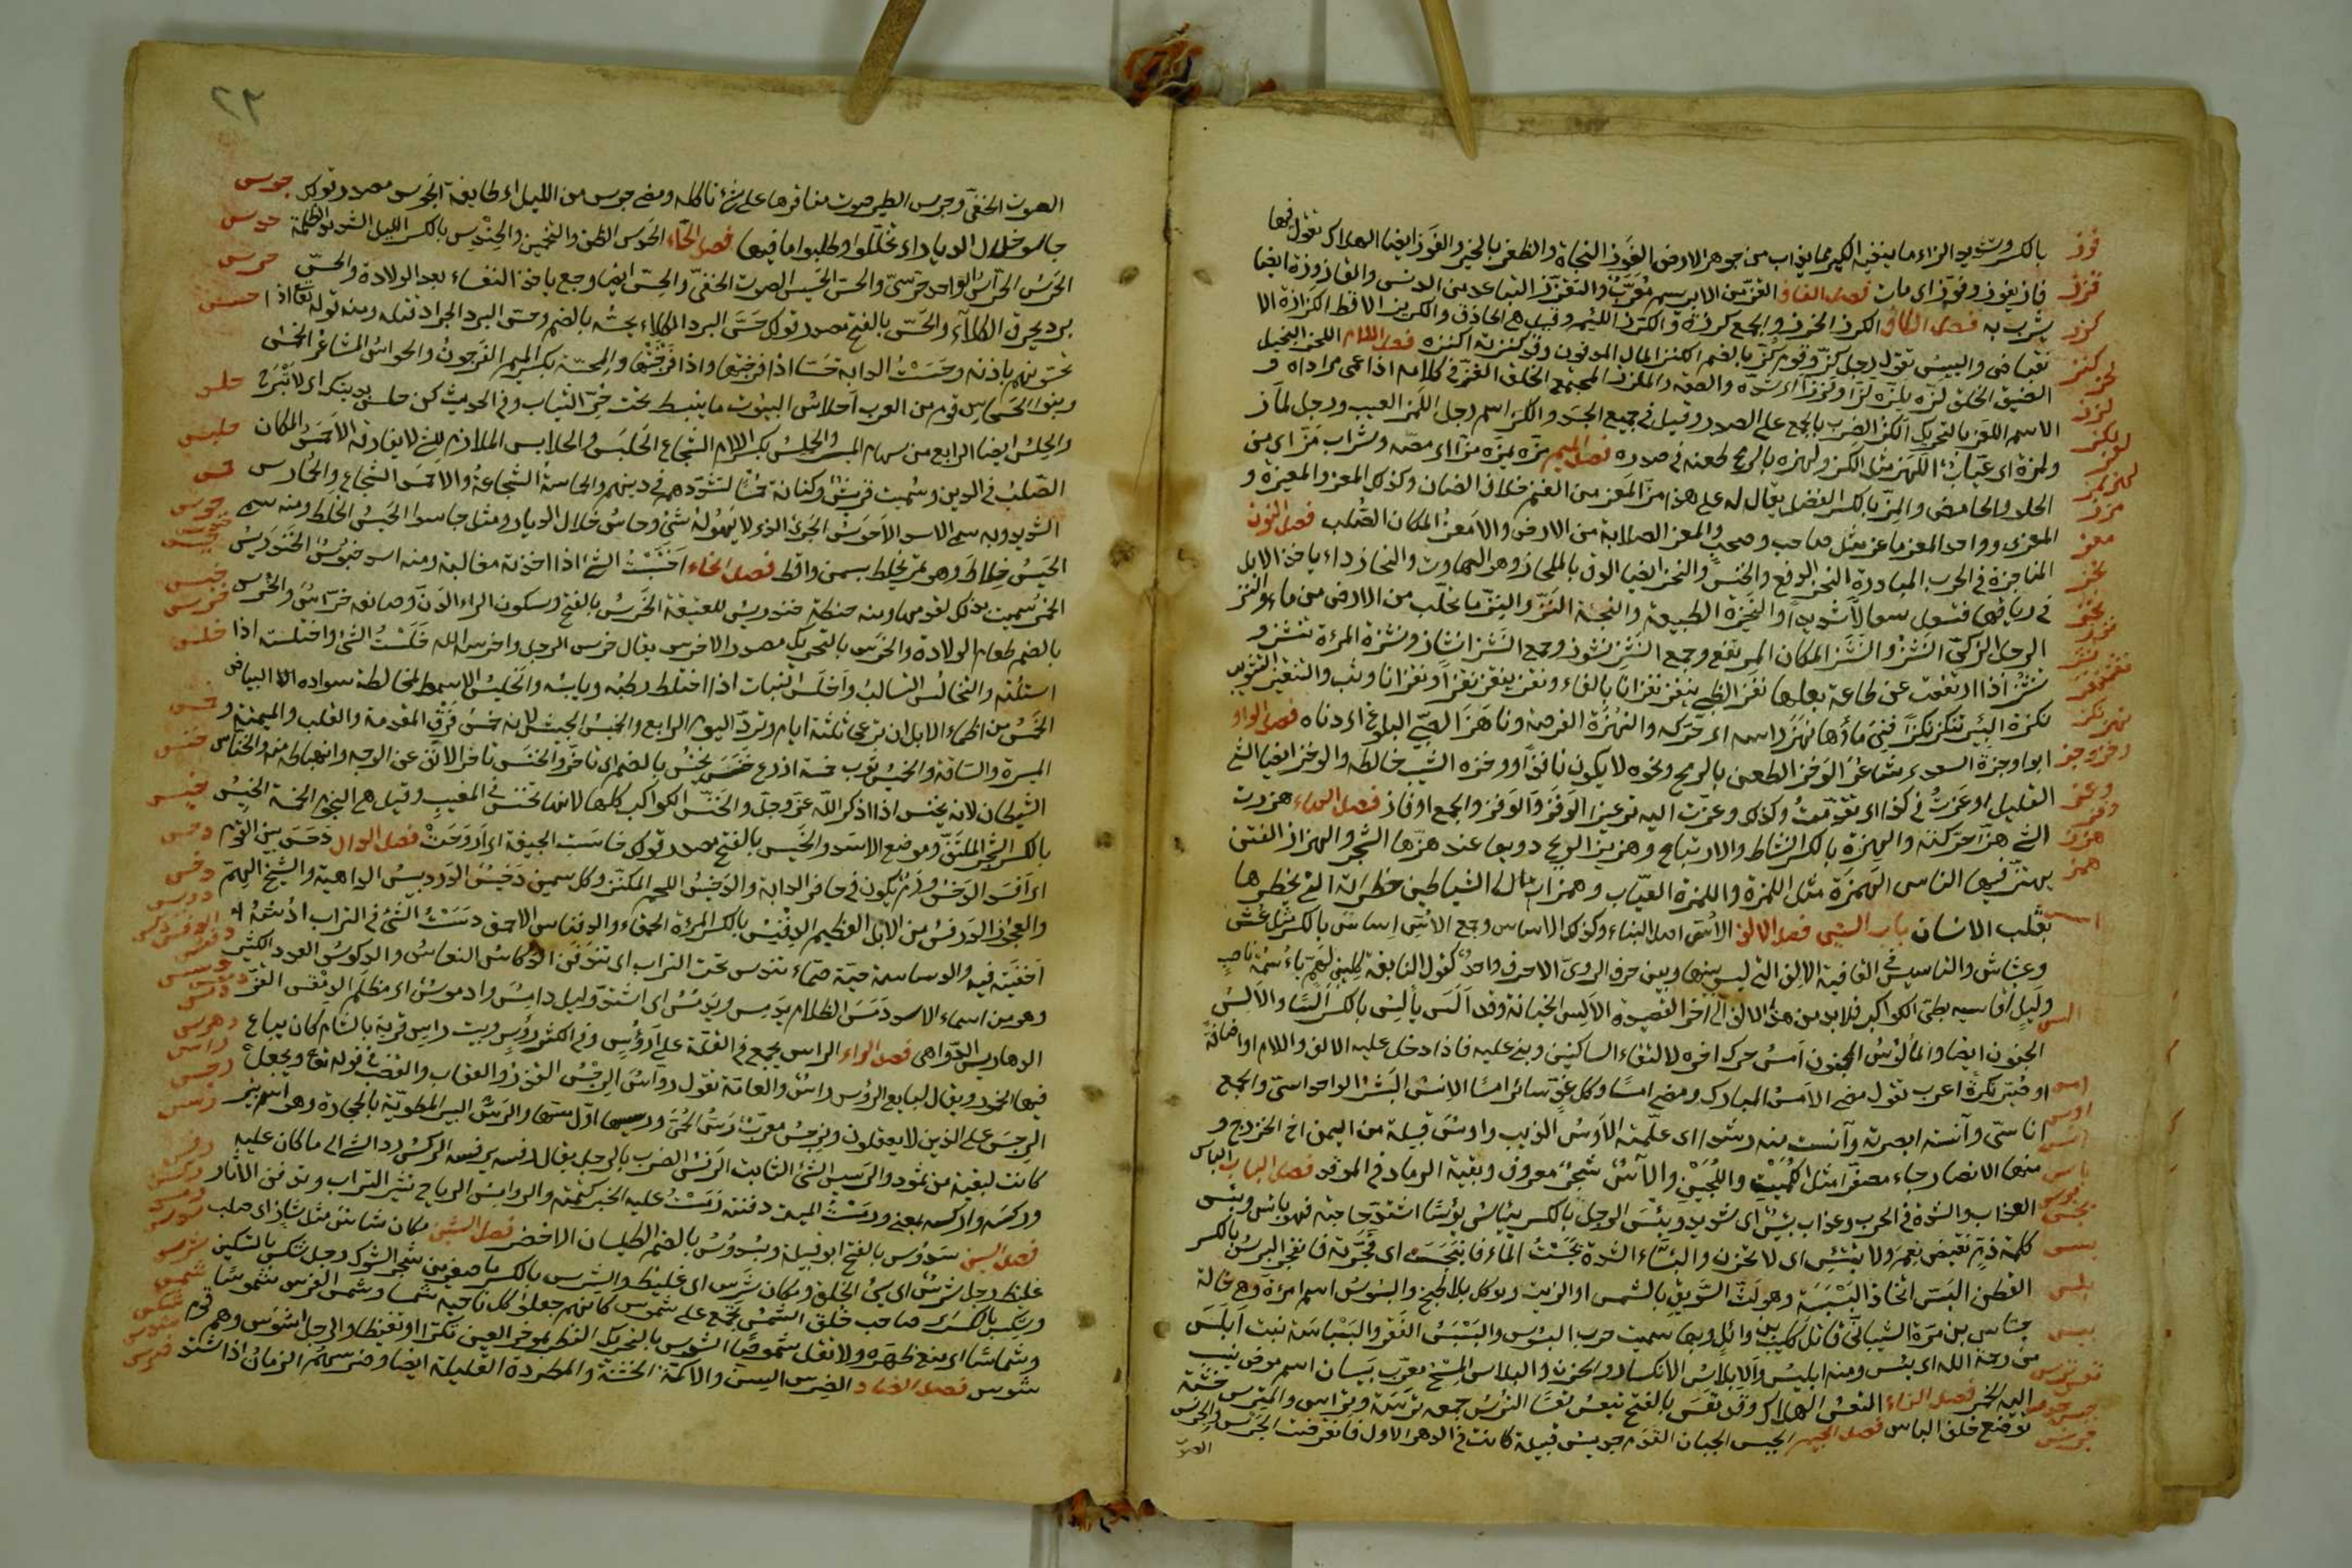 بالكسر وتشديد الزاء ما ينفيه الكير مما يذاب من جوهر الارض الفوز النجاة والظفر بالخير والفوز ايضا الهلاك تقول فيها
فاز يفوز وفوز اى مات فصل القاف القز من الابريسم معرب والتقزز التباعد من الدنس والقازوزة ايضا
يشرب به فصل الكاف الكرز الخرج والجمع كرزة والكرز اللئيم وقيل هى الحاذق والكريز الاقط الكزازة الا
نقباض واليبس تقول رجل كز وقوم كز بالضم الكنز المال المدفون وقد كنزته اكنزه فصل اللام اللحز البخيل
الضيق الخلق لزه يلزه لزا ولززا اى شده والصقه والملزز المجتمع الخلق الغز فى كلامه اذا عمى مراده و
الاسم اللغز بالتحريك اللكز الضرب بالجمع على الصدر وقيل فى جميع الجسد واللكز اسم رجل اللمز العيب ورجل لماز
ولمزة اى عياب اللهز مثل اللكز ولهزه بالرمح طعنه فى صدره فصل الميم مزه يمزه مزا اى مصه وشراب مز اى بين
الحلو والحامض والمز بالكسر الفضل يقال له على هذا مز المعز من الغنم خلاف الضان وكذلك المعز والمعيز و
المعزى وواحد المعز ماعز مثل صاحب وصحب والمعز الصلابة من الارض والامعز المكان الصلب فصل النون
المناجزة فى الحرب المبادرة النحز الدفع والنخس والنحز ايضا الدق بالمنحاز وهو الهاون والنحاز داء ياخذ الابل
فى رياتها فتسعل سعالا شديدا والنحيزة الطبيعة النز والنز ما تحلب من الارض من ماء والنز
الرجل الزكى النشز والنشز المكان المرتفع وجمع النشز نشوز وجمع النشز انشاز ونشزة المرءة تنشز و
تنشز اذا ارتفعت عن طاعة بعلها نفز الظبى ينفز نفزانا بالفاء ونقز ينقز نقزا ونقزانا وثب والتنقيز التثويب
نكزة البئر تنكز نكزا فنى ماؤها نهز راسه اى حركه والنهزة الفرصة وناهز الصبى البلوغ اى دناه فصل الواو
ابو وجزة السعدى شاعر الوخز الطعن بالرمح ونحوه لا يكون نافذا ووخزه الشيب خالطه والوخز ايضا الشئ
القليل اوعزت فى كذا اى تقدمت وكذلك وعزت اليه توعيزا الوفز والوفز والجمع اوفاز فصل الهاء هززت
الشئ هزا حركته والهزة بالكسر النشاط والارتياح وهزيز الريح دويها عند هزها الشجر والهزاهز الفتن
يهتز فيها الناس الهمزة مثل اللمزة واللمزة العياب وهمزات الشياطين خطراته التى يخطرها
بقلب الانسان باب السين فصل الالف الاس اصل البناء وكذلك الاساس وجمع الاس اساس بالكسر مثل عش
وعشاش والتاسيس فى القافية الالف التى ليس بينها وبين حرف الروى الا حرف واحد كقول النابغة كلينى لهم ياء ميمة ناصب
وليل اقاسيه بطئ الكواكب فلابد من هذه الالف الى اخر القصيدة الالس الخيانة وقد الس يالس بالكسر السا والالس
الجنون ايضا والمالوس المجنون امس حرك اخره لالتقاء الساكنين وبنى عليه فاذا دخل عليه الالف واللام او اضافة
او صير نكرة اعرب تقول مضى الامس المبارك ومضى امسنا وكل غد سائر امسا الانس البشر الواحد انسى والجمع
اناسى وآنسته ابصرته وآنست منه رشدا اى علمته الاوس الذيب واوس قبيلة من اليمن اخ الخزرج و
منهما الانصار جاء مصغرا مثل الكميت واللجين والآس شجر معروف وبقية الرماد فى الموقد فصل الباء البأس
العذاب والشدة فى الحرب وعذاب بئيس اى شديد وبئس الرجل بالكسر يبأس بؤسا اشتد حاجته فهو بائس وبئس
كلمة ذم نقيض نعم ولا تبتئس اى لا تحزن والبئساء الشدة بجست الماء فانبجس اى فجرته فانفجر البرس بالكسر
القطن البس اتخاذ البسيسة وهو لت السويق بالسمن او الزيت ويؤكل بلا طبخ والبسوس اسم امرءة وهى خالة
جساس بن مرة الشيبانى قاتل كليب وائل وبها سميت حرب البسوس والبسبس القفر والبسباسة نبت ابلس
من رحمة الله اى يئس ومنه ابليس والابلاس الانكسار والحزن والبلاس المسح معرب بيسان اسم موضع ينسب
اليه الخمر فصل التاء التعس الهلاك وقد تعس بالفتح يتعس تعسا الترس جمعه ترسة وتراس والمترس خشبة
توضع خلف الباب فصل الجيم الجبس الجبان القدم جديس قبيلة كانت فى الدهر الاول فانقرضت الجرس والجرس
الصوت
فوز
قزز
كرز
كنز
لحز
لزز
معز
همز
اسس
الس
امس
اوس
بجس
بسس
بلس
٢٣
الصوت الخفى وجرس الطير صوت مناقرها على شئ تاكله ومضى جرس من الليل اى طايفة الجوس مصدر قولك
جاسو خلال الديار اى تخللوا وطلبوا ما فيها فصل الحاء الحدس الظن والتخمين والحندس بالكسر الليل الشديد الظلمة
الحرس الحراس الواحد حرسى والحس والحسيس الصوت الخفى والحس ايضا وجع ياخذ النفساء بعد الولادة والحس
برد يحرق الكلاء والحس بالفتح مصدر قولك حس البرد الكلاء يحسه بالضم وحس البرد الجراد قتله ومنه قوله تعا اذ
تحسونهم باذنه وحسست الدابة حسا اذا فرجنتها والمحسة بكسر الميم الفرجون والحواس المشاعر الخمس
وبنو الحسحاس قوم من العرب احلاس البيوت ما ينبسط تحت حر الثياب وفى الحديث كن حلس بيتك اى لا تبرح
والحلس ايضا الرابع من سهام الميسر والحلس بكسر اللام الشجاع الحلبس والحلابس الملازم للشئ لا يفارقه الاحمس المكان
الصلب فى الدين وسميت قريش وكنانة حمسا لتشددهم فى دينهم والحماسة الشجاعة والاحمس الشجاع والحمارس
الشديد وبه سمى الاسد الاحوس الجرئ الذى لا يهوله شئ وحاس خلال الديار ومثل جاسوا الحيس الخلط ومنه سمى
الحيس خلاط وهى تمر يخلط بسمن واقط فصل الخاء اختبست الشئ اذا اخذته مغالبة ومنه اسد خبوس الخندريس
الخمر سميت بذلك لقدمها ومنه حنطة خندريس للعتيقة الخرس بالفتح وسكون الراء الدن وصانعه خراس والخرس
بالضم طعام الولادة والخرس بالتحريك مصدر الاخرس يقال خرس الرجل واخرسه الله خلست الشئ واختلسته اذا
استلبته والتخالس التسالب واخلس النبات اذا اختلط رطبه ويابسه والخليس الاشمط لمخالطة سواده الا البياض
الخمس من اظماء الابل ان ترعى ثلثة ايام وترد اليوم الرابع والخميس الجيش لانه خمس فرق المقدمة والقلب والميمنة و
الميسرة والساقة والخميس ثوب خمسة اذرع خنس يخنس بالضم اى تاخر والخنس تاخر الانف عن الوجه وانهباطه منه والخناس
الشيطان لانه يخنس اذا اذكر الله عز وجل والخنس الكواكب كلها لانها تخنس فى المغيب وقيل هى النجوم الخمسة الخيس
بالكسر الشجر الملتف وموضع الاسد والخيس بالفتح مصدر قولك خاست الجيفة اى اروحت فصل الدال دحس بين القوم
اى افسد الدخس ورم يكون فى حافر الدابة والدخيس اللحم المكتنز وكل سمين دخيس الدردبيس الداهية والشيخ الهم
والعجوز الدرفس من الابل العظيم الدفنس بالكسر المرءة الحمقاء والدفناس الاحمق دسست الشئ فى التراب
اخفيته فيه والدساسة حية صماء تندس تحت التراب اى تندفن الدكاس النعاس والدوكس العدد الكثير
وهو من اسماء الاسد دمس الظلام يدمس ويدمس اى اشتد وليل دامس وادموس اى مظلم الدمقس القز
الدهاريس الدواهى فصل الراء الراس يجمع فى القلة على ارؤس وفى الكثرة رؤس وبيت راس قرية بالشام كان يباع
فيها الخمور ويقال لبايع الرؤس راس والعامة تقول رواس الرجس القذر والعقاب والغضب فى قوله تعا ويجعل
الرجس على الذين لا يعقلون ونرجس معرب رس الحمى ورسيسها اول مسها والرس البئر المطوية بالحجارة وهو اسم بئر
كانت لبقية من ثمود والرسيس الشئ الثابت الرفس الضرب بالرجل يقال رفسه يرفسه الركس رد الشئ الى ما كان عليه
وركسه واركسه بمعنى ورمست الميت دفنته رمست عليه الخبر كتمته والروامس الرياح تثير التراب وتدفن الاثار
فصل السين سدوس بالفتح ابو قبيلة وسدوس بالضم الطيلسان الاخضر فصل الشين مكان شاس مثل شاز اى صلب
غليظ رجل شرس اى سئ الخلق ومكان شرس اى غليظ والشرس بالكسر ما صغر من شجر الشوك رجل شكس بالتسكين
وشكس بالكسر صاحب خلق الشمس تجمع على شموس كانهم جعلوا كل ناحية شمسا وشمس الفرس شموسا
وشماسا اى منع ظهره ولا تقل شموصا الشوس بالتحريك النظر بمؤخر العين تكبرا او تغيظا والرجل اشوس وهم قوم
شوس فصل الضاد الضرس السن والاكمة الخشنة والمطردة القليلة ايضا وضرسهم الزمان اذا اشتد
جوس
حدس
حرس
حسس
حلس
حلبس
حمس
حوس
خبس
خرس
خلس
خمس
خنس
خيس
دحس
دخس
دهرس
راس
رجس
رسس
رفس
ركس
رمس
سدس
شرس
شمس
شكس
شوس
ضرس